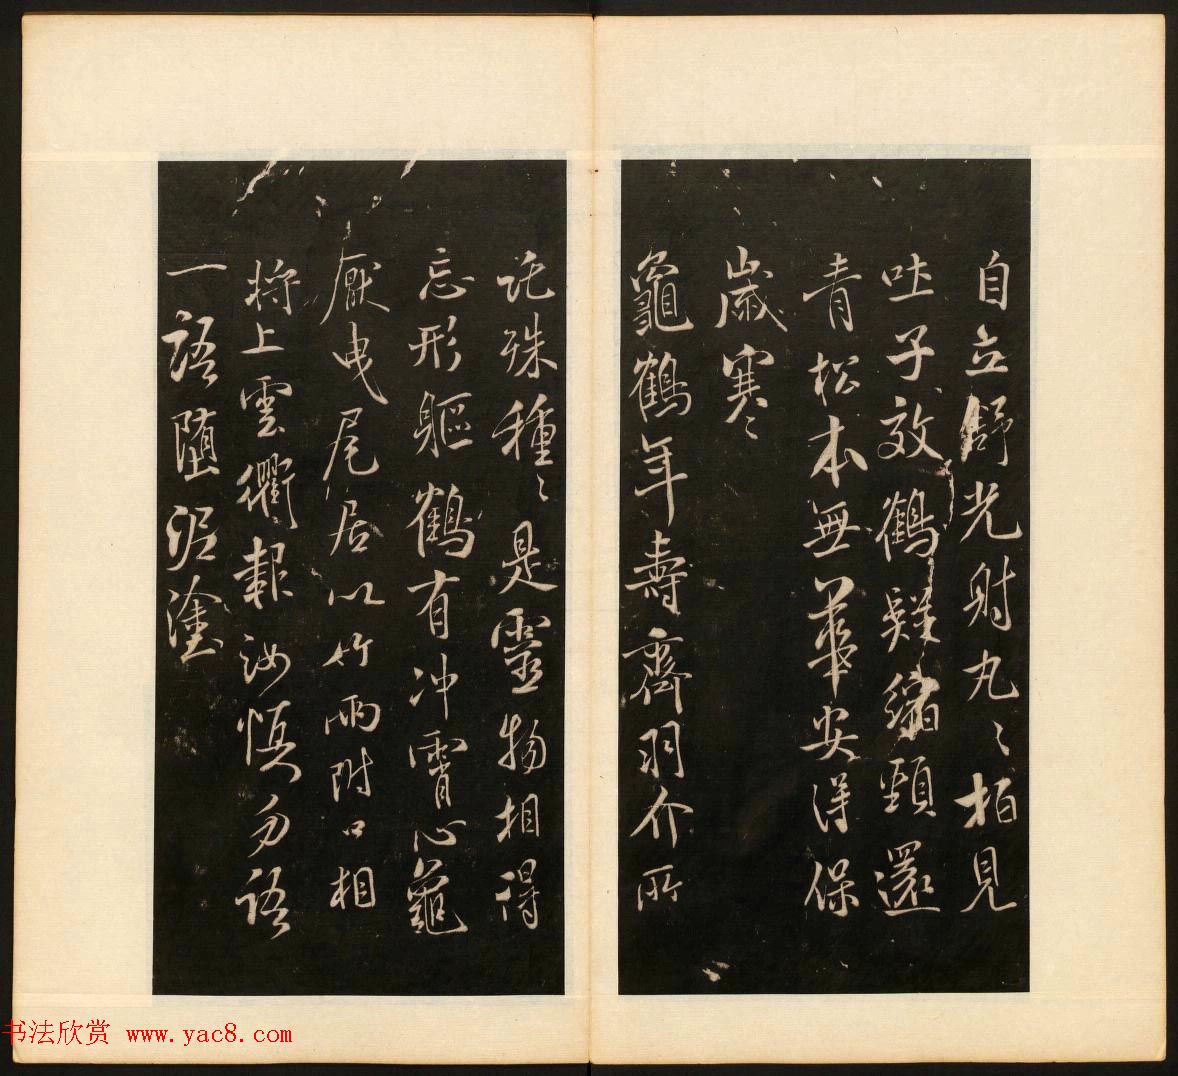 自立舒光射丸〻柏見
吐子效鶴疑縮頸還
青松本無華安得保
歲寒
龜鶴年壽齊羽介所
託殊種〻是靈物相得
忘形軀鶴有冲霄心龜
厭曳尾居以竹兩附口相
將上雲衢報汝慎勿語
一語墮泥塗
书法欣赏 www.yac8.com